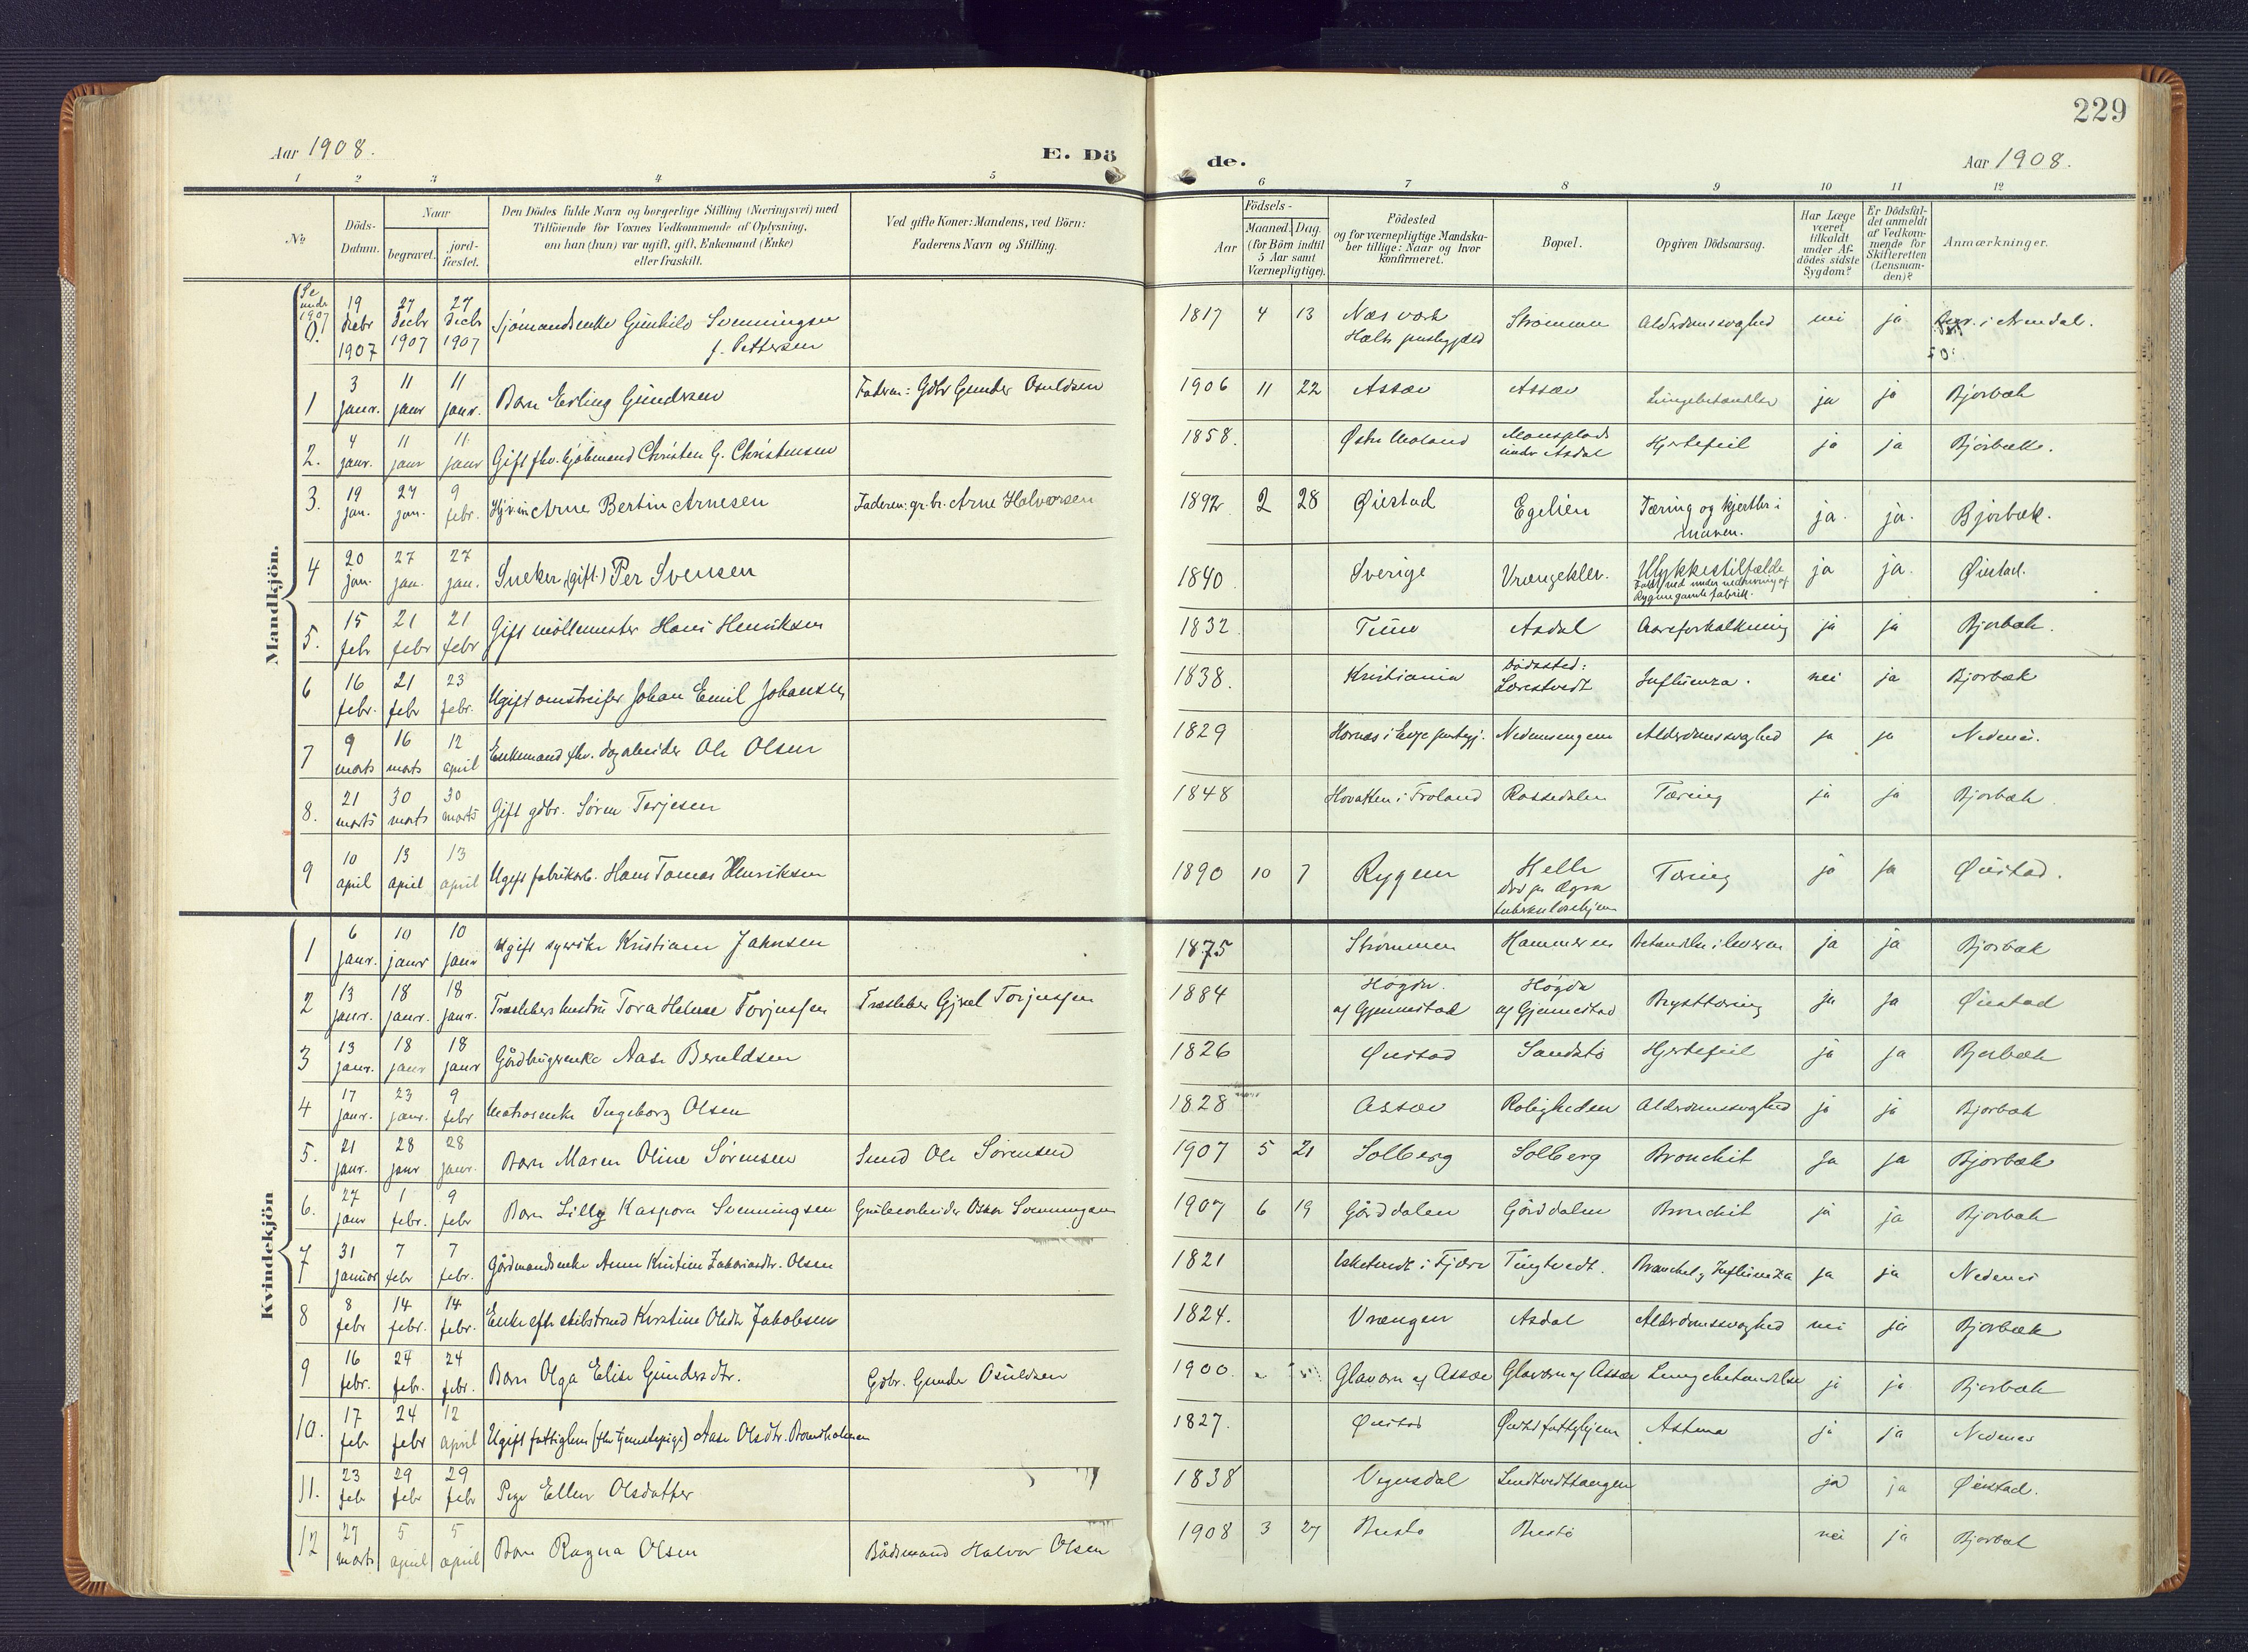 229
Aar 1908.
E. Dö
de.
Aar 1908.
1 2 3 4 5 6 7 8 9 10 11 12
No
Döds-Datum.
Naar
begravet.
jord-fæstet.
Den Dödes fulde Navn og borgerlige Stilling (Næringsvei) med
Tilföiende for Voxnes Vedkommende af Oplysning,
om han (hun) var ugift, gift, Enkemand (Enke)
eller fraskilt.
Ved gifte Koner: Mandens, ved Börn:
Faderens Navn og Stilling.
Födsels-
Aar
Maaned. Dag.
(for Börn indtil
5 Aar samt
Værnepligtige).
Födested
og for værnepligtige Mandska-
ber tillige: Naar og hvor
konfirmeret.
Bopæl.
Opgiven Dödsaarsag.
Har Læge
været
tilkaldt
under Af-
dödes sidste
Sygdom?
Er Dödsfal-
det anmeldt
af Vedkom-
mende for
Skifteretten
(Lensman-
den)?
Anmærkninger.
Mandkjön.
Se under 1907 0. 19 decbr 1907 27 decbr 1907 27 decbr 1907 Sjømandsenke Gunhild Svenningsen f. Pettersen 1817 4 13 Næs værk Holts prestegjeld Strømmen Alderdomssvaghed nei ja i Arendal.
1 3 janr. 11 janr 11 janr. Barn Erling Gundersen Faderen: Gdbr Gunder Osuldsen 1906 11 22 Assæv Assæv Lungebetændelse ja ja Bjorbæk
2. 4 janr. 11 janr 11 janr Gift fhv. sjømand Christen G. Christensen 1858. Østre Moland Monsplads under Asdal Hjertefeil ja ja Bjorbæk.
3. 19 jan. 27 jan. 9 febr. Arne Bertin Arnesen Faderen: gr. br. Arne Halvorsen 1892 2 28 Øiestad Egelien Tæring og kjertler i maven. ja. ja. Bjorbæk.
4 20 jan. 27 jan. 27 jan. Sneker, (gift.) Per Svensen 1840. Sverige Vrængeklev. Ulykkestilfælde Faldt ned under nedrivning af Rygene gamle fabrik. ja ja. Øiestad.
5. 15 febr 21 febr 21 febr Gift møllemester Hans Henriksen 1832. Asdal Aareforkalkning ja ja Bjorbæk.
6 16 febr. 21 febr 23 febr. Ugift omstreifer Johan Emil Johansen 1838. Kristiania Dødssted: Lærestvedt Influenza. nei ja Bjorbæk
7 9 marts 16 marts 12 april Enkemand fhv. dagarbeider Ole Olsen 1829 Hornæs i Evje prestegj. Nedenesengen Alderdomssvaghed ja ja Nedenes.
8. 21 marts 30 marts 30 marts Gift gdbr. Søren Terjesen 1848 Hovatten i Froland Rossedalen Tæring ja ja Bjorbæk.
9 10 april 13 april 13 april Ugift fabrikarb. Hans Tomas Henriksen 1890 10 7 Rygene Helle tuberkulosehjem Tæring ja ja Øiestad.
Kvindekjön
1 6 janr. 10 janr 10 janr Ugift syerske Kristiane Jahnsen 1875 Strømmen Hammeren Betændelse i leveren ja ja Bjorbæk
2 13 janr. 18 janr. 18 janr. Træslibers hustru Tora Helene Torjussen Træsliber Gjsel Torjussen 1884 Høgda. af Gjennestad Høgda af Gjennestad Brysttæring ja ja Øiestad
3 13 janr. 18 janr 18 janr Gårdbrugerenke Aase Beruldsen 1826 Øiestad Sandstø Hjertefeil ja ja Bjorbæk
4 17 janr. 23 janr. 9 febr Matrosenke Ingeborg Olsen 1828 Assæv Roligheden Alderdomssvaghed ja ja Bjorbæk
5. 21 janr. 28 janr 28 janr. Barn Maren Oline Sørensen Smed Ole Sørensen 1907 5 21 Solberg Solberg Bronchit ja ja Bjorbæk
6. 27 janr 1 febr. 9 febr Barn Lilly Kaspara Svenningsen Grubearbeider Oskar Svenningsen 1907 6 19 Gårddalen Gårddalen Bronchit ja ja Bjorbæk
7 31 januar 7 febr 7 febr. Gårdmandsenke Anne Kristine Zakariasdtr. Olsen 1821 i Fjære Tingtvedt. Bronchit, Influenza ja ja Nedenes
8 8 febr 14 febr. 14 febr. Enke efter skibstmd Kirstine Olsdtr Jakobsen 1824. Vrængen Asdal Alderdomssvaghed nei ja Bjorbæk
9 16 febr. 24 feb. 24 feb. Barn Olga Elise Gundersdtr. Gdbr. Gunder Osuldsen 1900. Glavarn af Assæv Glavarn af Assæv Lungebetændelse ja ja Bjorbæk
10. 17 feb 24 febr 12 april Ugift fattiglem (fhv tjenestepige) Aase Olsdtr. Bomdholmen 1827. Øiestad Øiestad fattighjem Astma ja ja Nedenes
11. 23 feb 29 febr 29 febr Pige Ellen Olsdatter 1838 Vegusdal Lundtvedttangen ja ja Øiestad.
12 27 marts 5 april 5 april Barn Ragna Olsen Bådsmand Halvor Olsen 1908 3 27 Bustø Bustø nei ja Bjorbæk